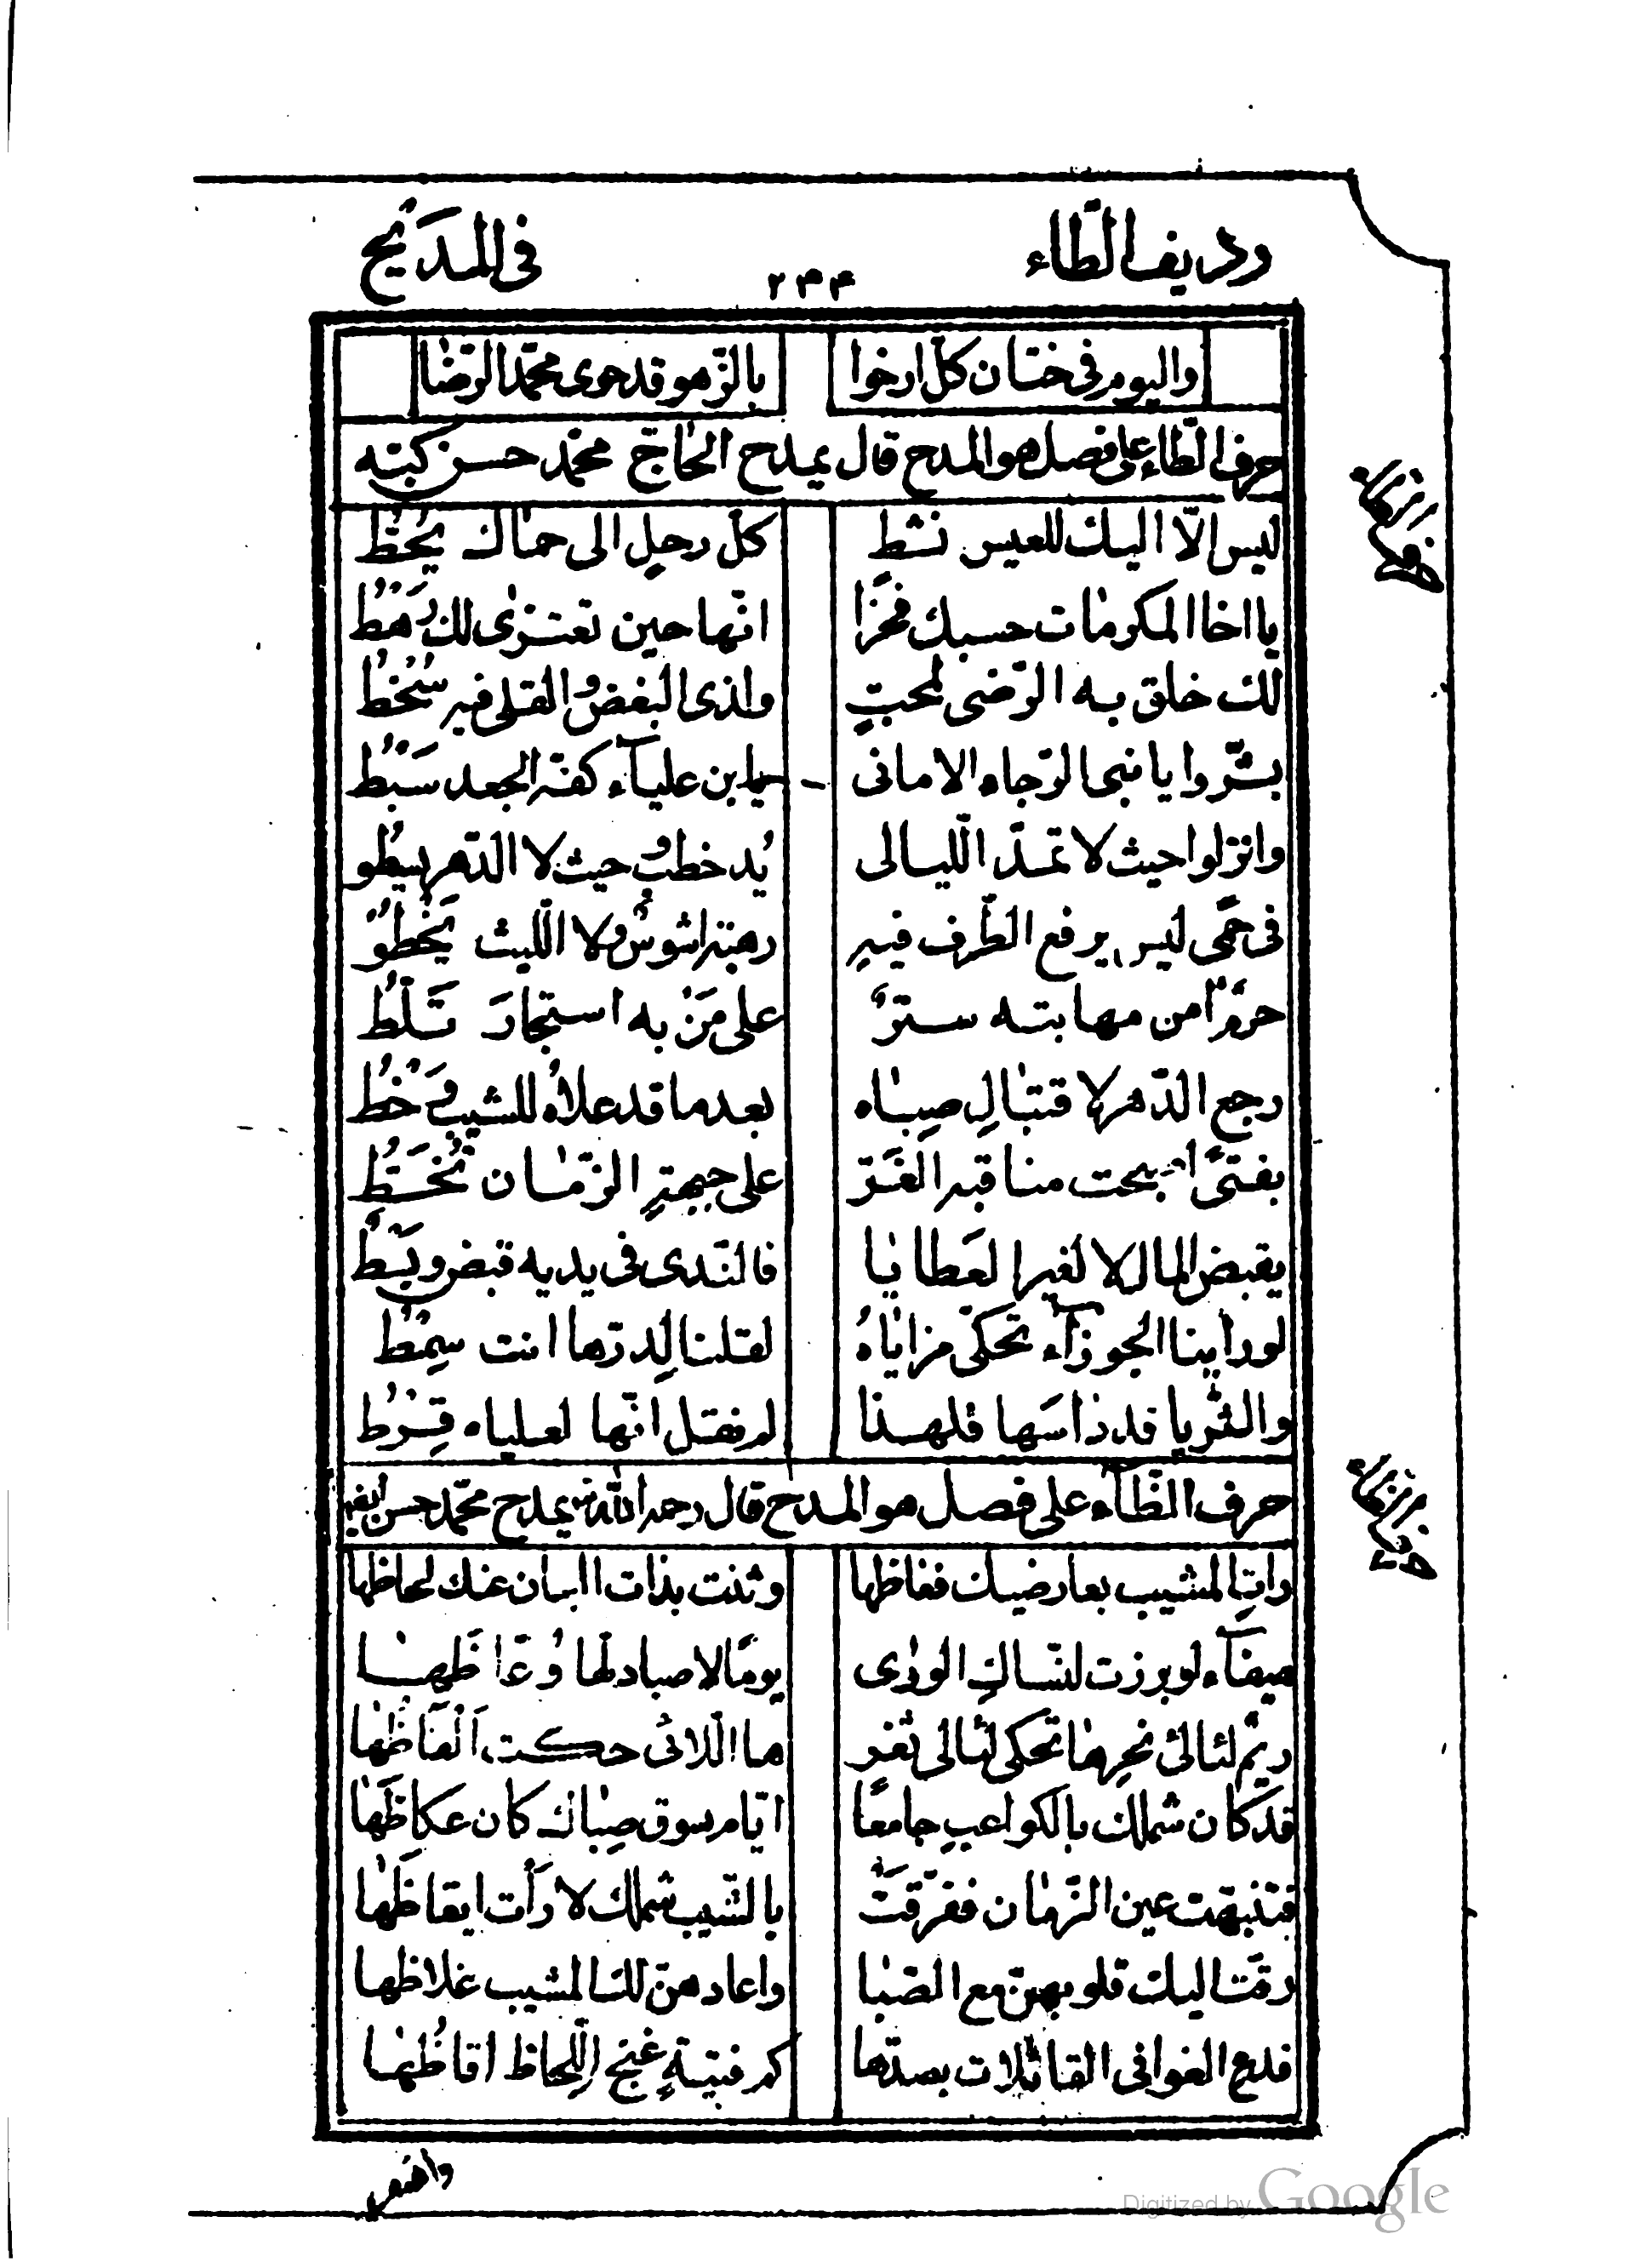 ورديف الطّاء ٢٣۴ فى المديح
واليوم فى ختان كلّ ارخوا بالزّهو قد حوى محمّد الرّضا
حرف الطّاء على فصل هو المدح قال يمدح الحاجّ محمّد حسن كبّه
ليس الّا اليك للعيس نشط كلّ رحلٍ الى حماك يُحَطُّ
يا اخا المكرمات حسبك فخرًا انّها حين تعتزى لك رَهْطُ
لك خلق به الرّضى لمحبّ ولذى البغض والقلى فيه سُخْطُ
بشّروا يا نبى الرّجاء الامانى بابن علياء كفّه الجعد سَبْطُ
وانزلوا حيث لا تمدّ اللّيالى يُد خطب حيث لا الدّهر يسطُو
فى حِمًى ليس يرفع الطّرف فيه رهبةً اشوسٌ ولا اللّيث يَخْطُو
حرمًا من مهابته سترٌ على مَنْ به استجار تَلُطُّ
رجع الدّهر لاقتبال صِباه بعد ما قد علاه للشيب وَخْطُ
بفتًى اصبحت مناقبه الغُرّ على جبهة الزّمان تُخَطُّ
يقبض المال لا لغير العَطايا فالنّدى فى يديه قبض وبَسْطُ
لو راينا الجوزاء تحكى مزاياهُ لقلنا لِدرّها انت سِمْطُ
والثّريا قد ذاسَها فلهذا لم نقل انّها لعلياه قِرْطُ
حرف الظّاء على فصل هو المدح قال رحمه اللّه يمدح محمّد حسن ايضا
راق المشيب بعارضيك فغاظها وثنت بذات البان عنك لحاظها
هيفاء لو برزت لنسّاكِ الورى يومًا لاصبا دلّها وُعّاظَها
ريمٌ لئالئ نحرها تحكى لئالى ثغرـ ها اللّائى حكت اَلْفاظُها
قد كان شملك بالكواعب جامعًا ايّام سوق صِباك كان عكاظَها
فتنبّهت عين الزّمان ففرّقَتْ بالشّيب شملك لا رأت ايقاظَها
رقّت اليك قلوبهنّ مع الصّبا واعادهنّ لك المشيب غلاظها
فدع الغوانى القاتلات بصدّها كم فتيةٍ غنج اللّحاظ افاظَها